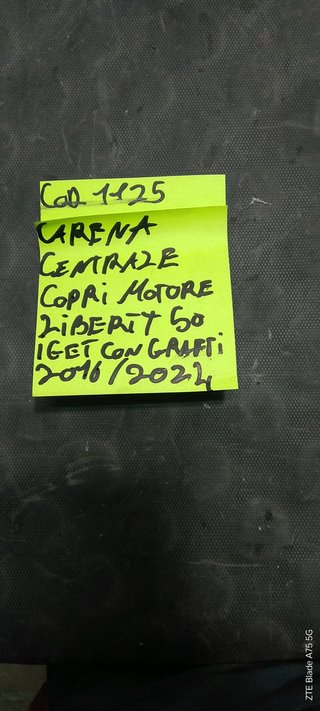 COD 1125
CARENA
CENTRALE
COPRi MOTORE
LiBERTY 50
IGET CON GRAFFi
2016/2024
ZTE Blade A75 5G